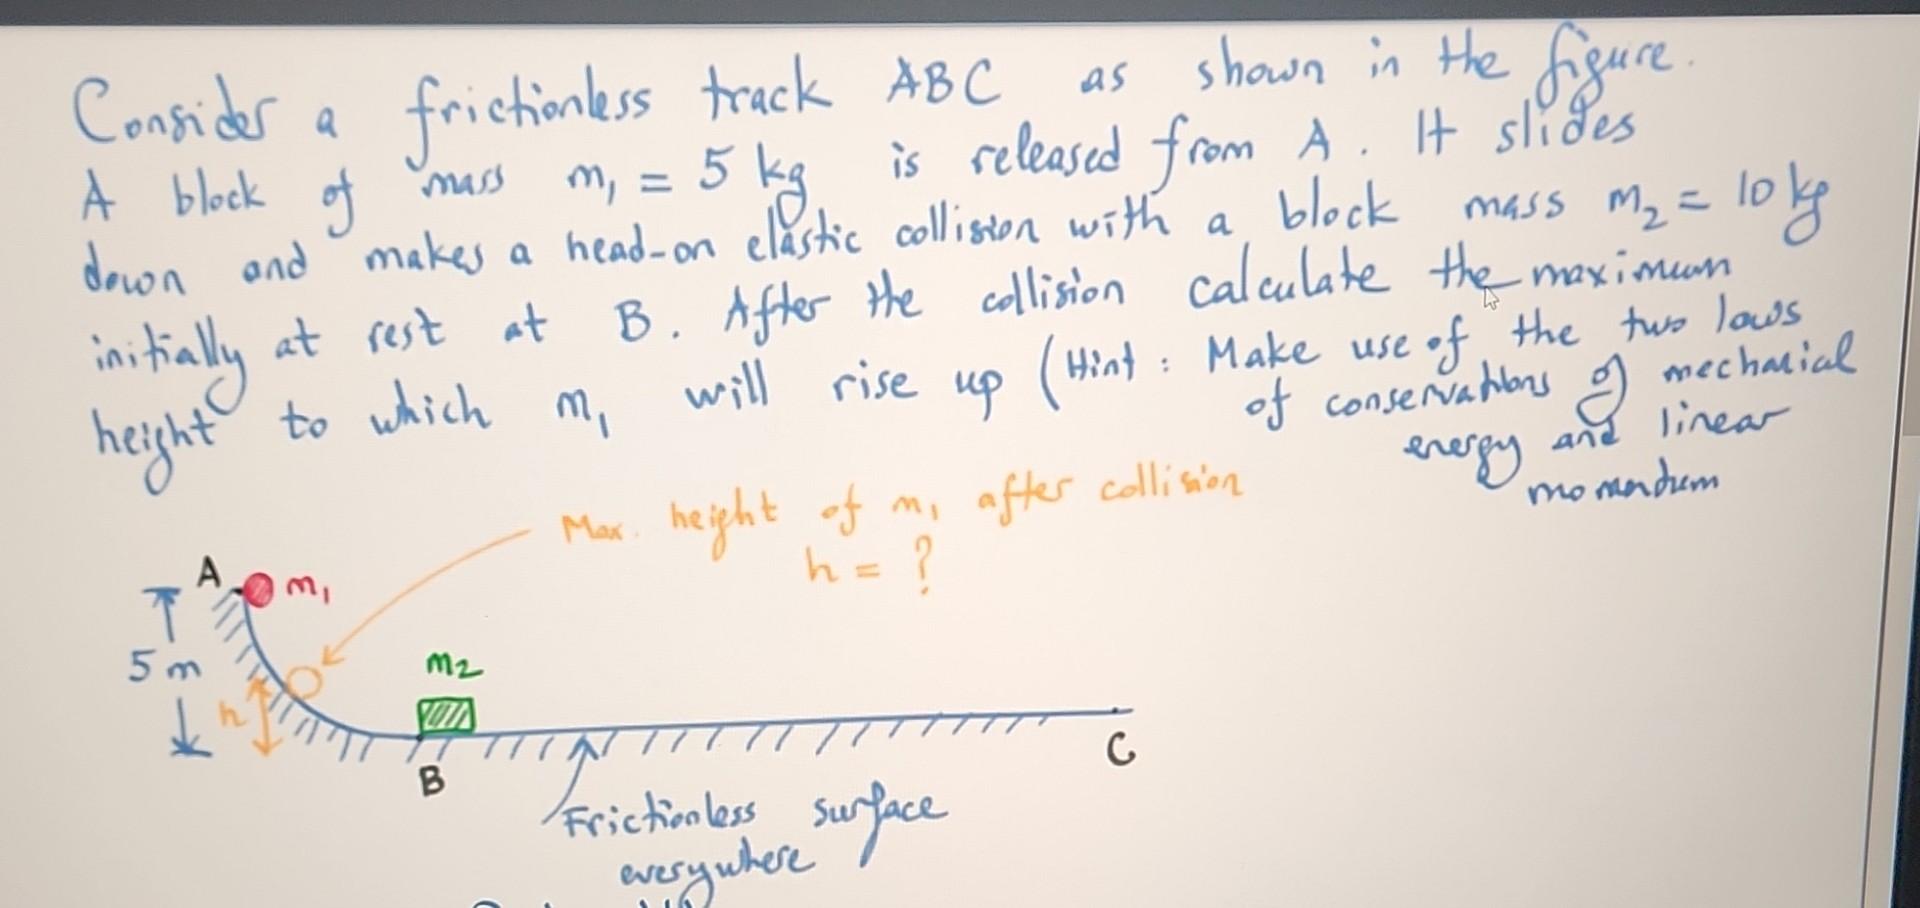 Consider a frictionless track ABC as shown in the figure.
A block of mass m₁ = 5 kg is released from A. It slides
down and makes a head-on elastic collision with a block mass m₂ = 10 kg
initially at rest at B. After the collision calculate the maximum
height to which m₁ will rise up (Hint: Make use of the two laws
of conservations of mechanial
energy and linear
momentum
Max. height of m₁ after collision
h = ?
A
m₁
5 m
h
m₂
B
C
Frictionless surface
everywhere